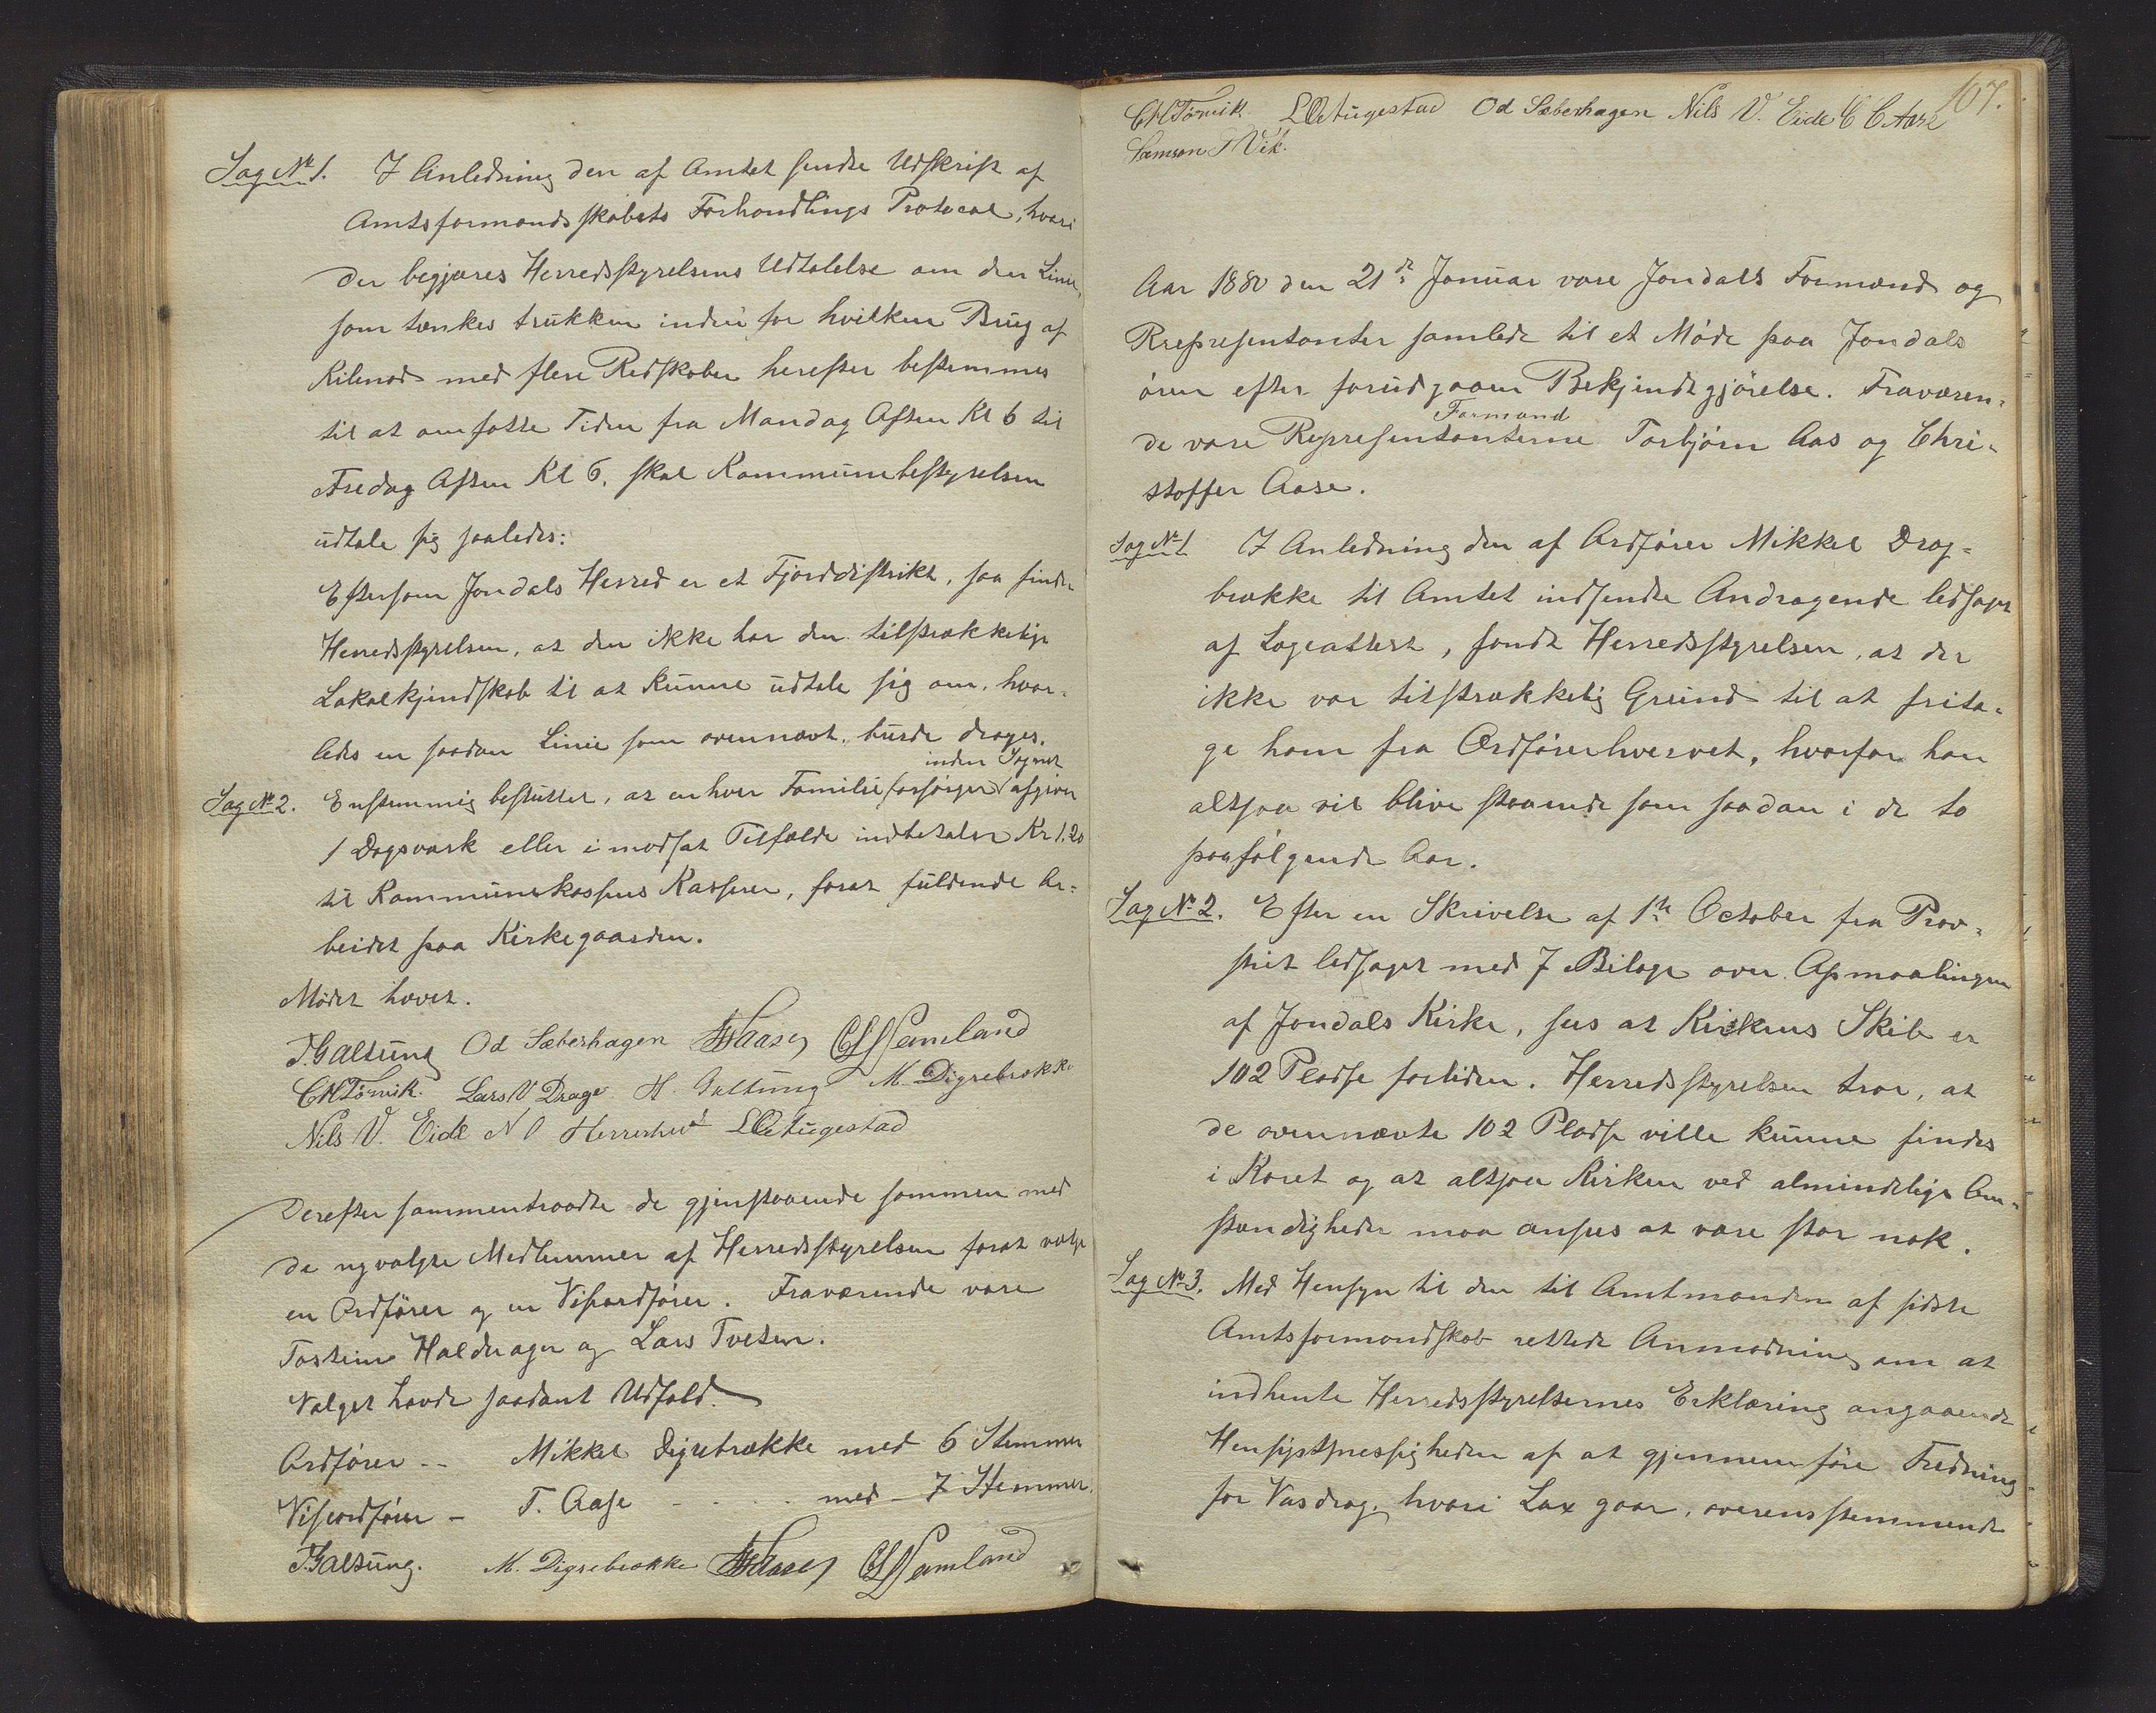 Sag № 1. I Anledning den af Amtet sendte Udskrift af
Amtsformandskabets Forhandlings Protocol, hvori
der begjæres Herredsstyrelsens Udtalelse om den Linie,
som tænkes trukken inden for hvilken Brug af
Kilenod med flere Redskaber herefter bestemmes
til at omfatte Tiden fra Mandag Aften Kl 6 til
Fredag Aften Kl 6. skal Kommunebestyrelsen
udtale sig saaledes:
Eftersom Jondals Herred er et Fjorddistrikt, saa finder
Herredsstyrelsen, at den ikke har den tilstrækkelige
Lokalkjendskab til at kunne udtale sig om, hvor-
ledes en saadan Linie som ovennævt, burde drages.
inden Sognet
Sag № 2. Enstemmig besluttet, at enhver Familieforsørger afgiver
1 Dagsværk eller i modsat Tilfælde indbetaler Kr 1.20
til Kommunekassens Kasserer, forat fuldende Ar-
beidet paa Kirkegaarden.
Mødet hævet.
T. Galtung Od Sæberhagen Aase CL Samland
CHTørvik. Lars V Drage H. Galtung M. Digrebrække
Nils V. Eide N O Herrestvet LOAugestad
Derefter sammentraadte de gjenstaaende sammen med
de nyvalgte Medlemmer af Herredsstyrelsen forat vælge
en Ordfører og en Viseordfører. Fraværende vare
Torstein Haldrager og Lars Tveten.
Valget havde saadant Udfald.
Ordfører -- Mikkel Digrebrække med 6 Stemmer
Viseordfører - T. Aase - . . . med - 7 Stemmer.
T. Galtung. M. Digrebrække Aase CL Samland
107.
CHTørvik LOAugestad Od Sæberhagen Nils V. Eide C C Aase
Samson T Vik.
Aar 1880 den 21de Januar vare Jondals Formænd og
Rrepresentanter samlede til et Møde paa Jondals
øren efter forudgaaen Bekjendtgjørelse. Fraværen-
Formand
de vare Representanterne Torbjørn Aas og Chri-
stoffer Aase.
Sag № 1 I Anledning den af Ordfører Mikkel Drag-
brække til Amtet indsendte Andragende ledsaget
af Lægeattest, fandt Herredsstyrelsen, at der
ikke var tilstrækkelig Grund til at frita-
ge ham fra Ordførerhvervet, hvorfor han
altsaa vil blive staaende som saadan i de to
paafølgende Aar.
Sag № 2. Efter en Skrivelse af 1ste October fra Prov-
stiet ledsaget med 7 Bilage over Opmaalingen
af Jondals Kirke, sees at Kirkens Skib er
102 Pladse forliden. Herredsstyrelsen tror, at
de ovennævte 102 Pladse ville kunne findes
i Koret og at altsaa Kirken ved almindelige Om-
stændigheder maa ansees at være stor nok.
Sag № 3. Med Hensyn til den til Amtmanden af sidste
Amtsformandskab rettede Anmodning om at
indhente Herredsstyrelsernes Erklæring angaaende
Hensigtsmessigheden af at gjennemføre Fredning
for Vasdrag, hvori Lax gaar, overensstemmende